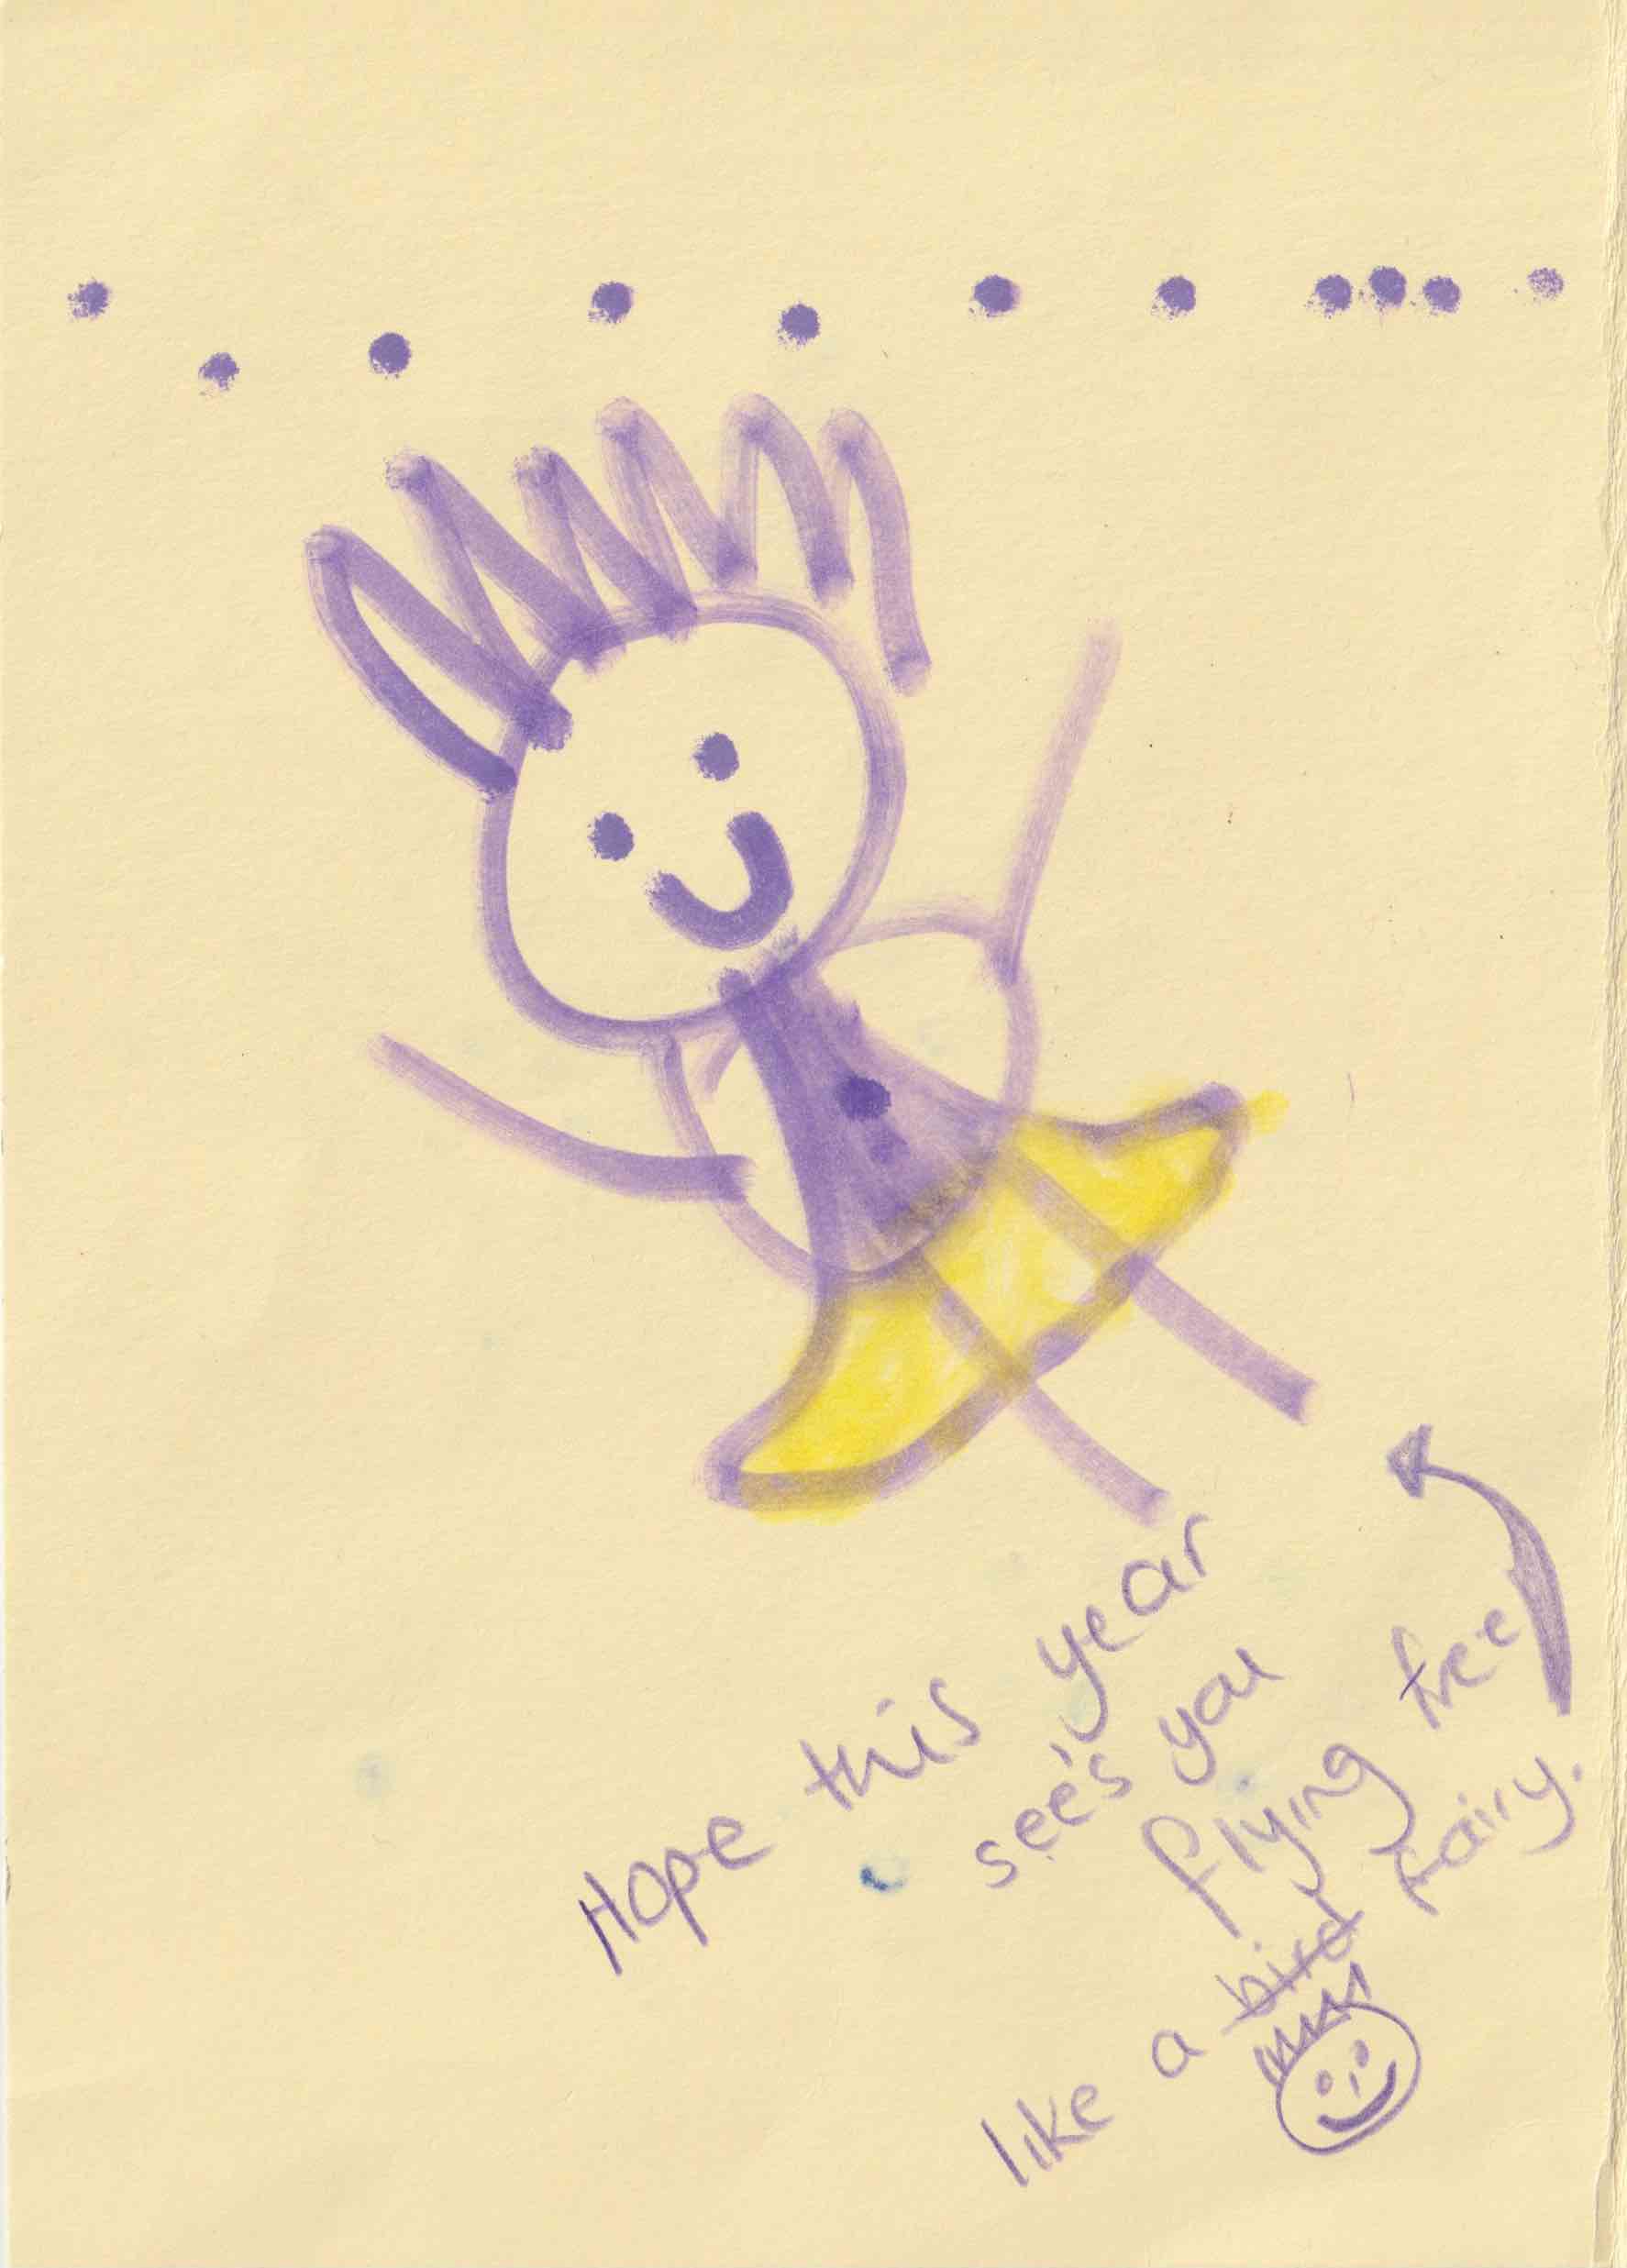 Hope this year
see's you
flying free
like a bird fairy.